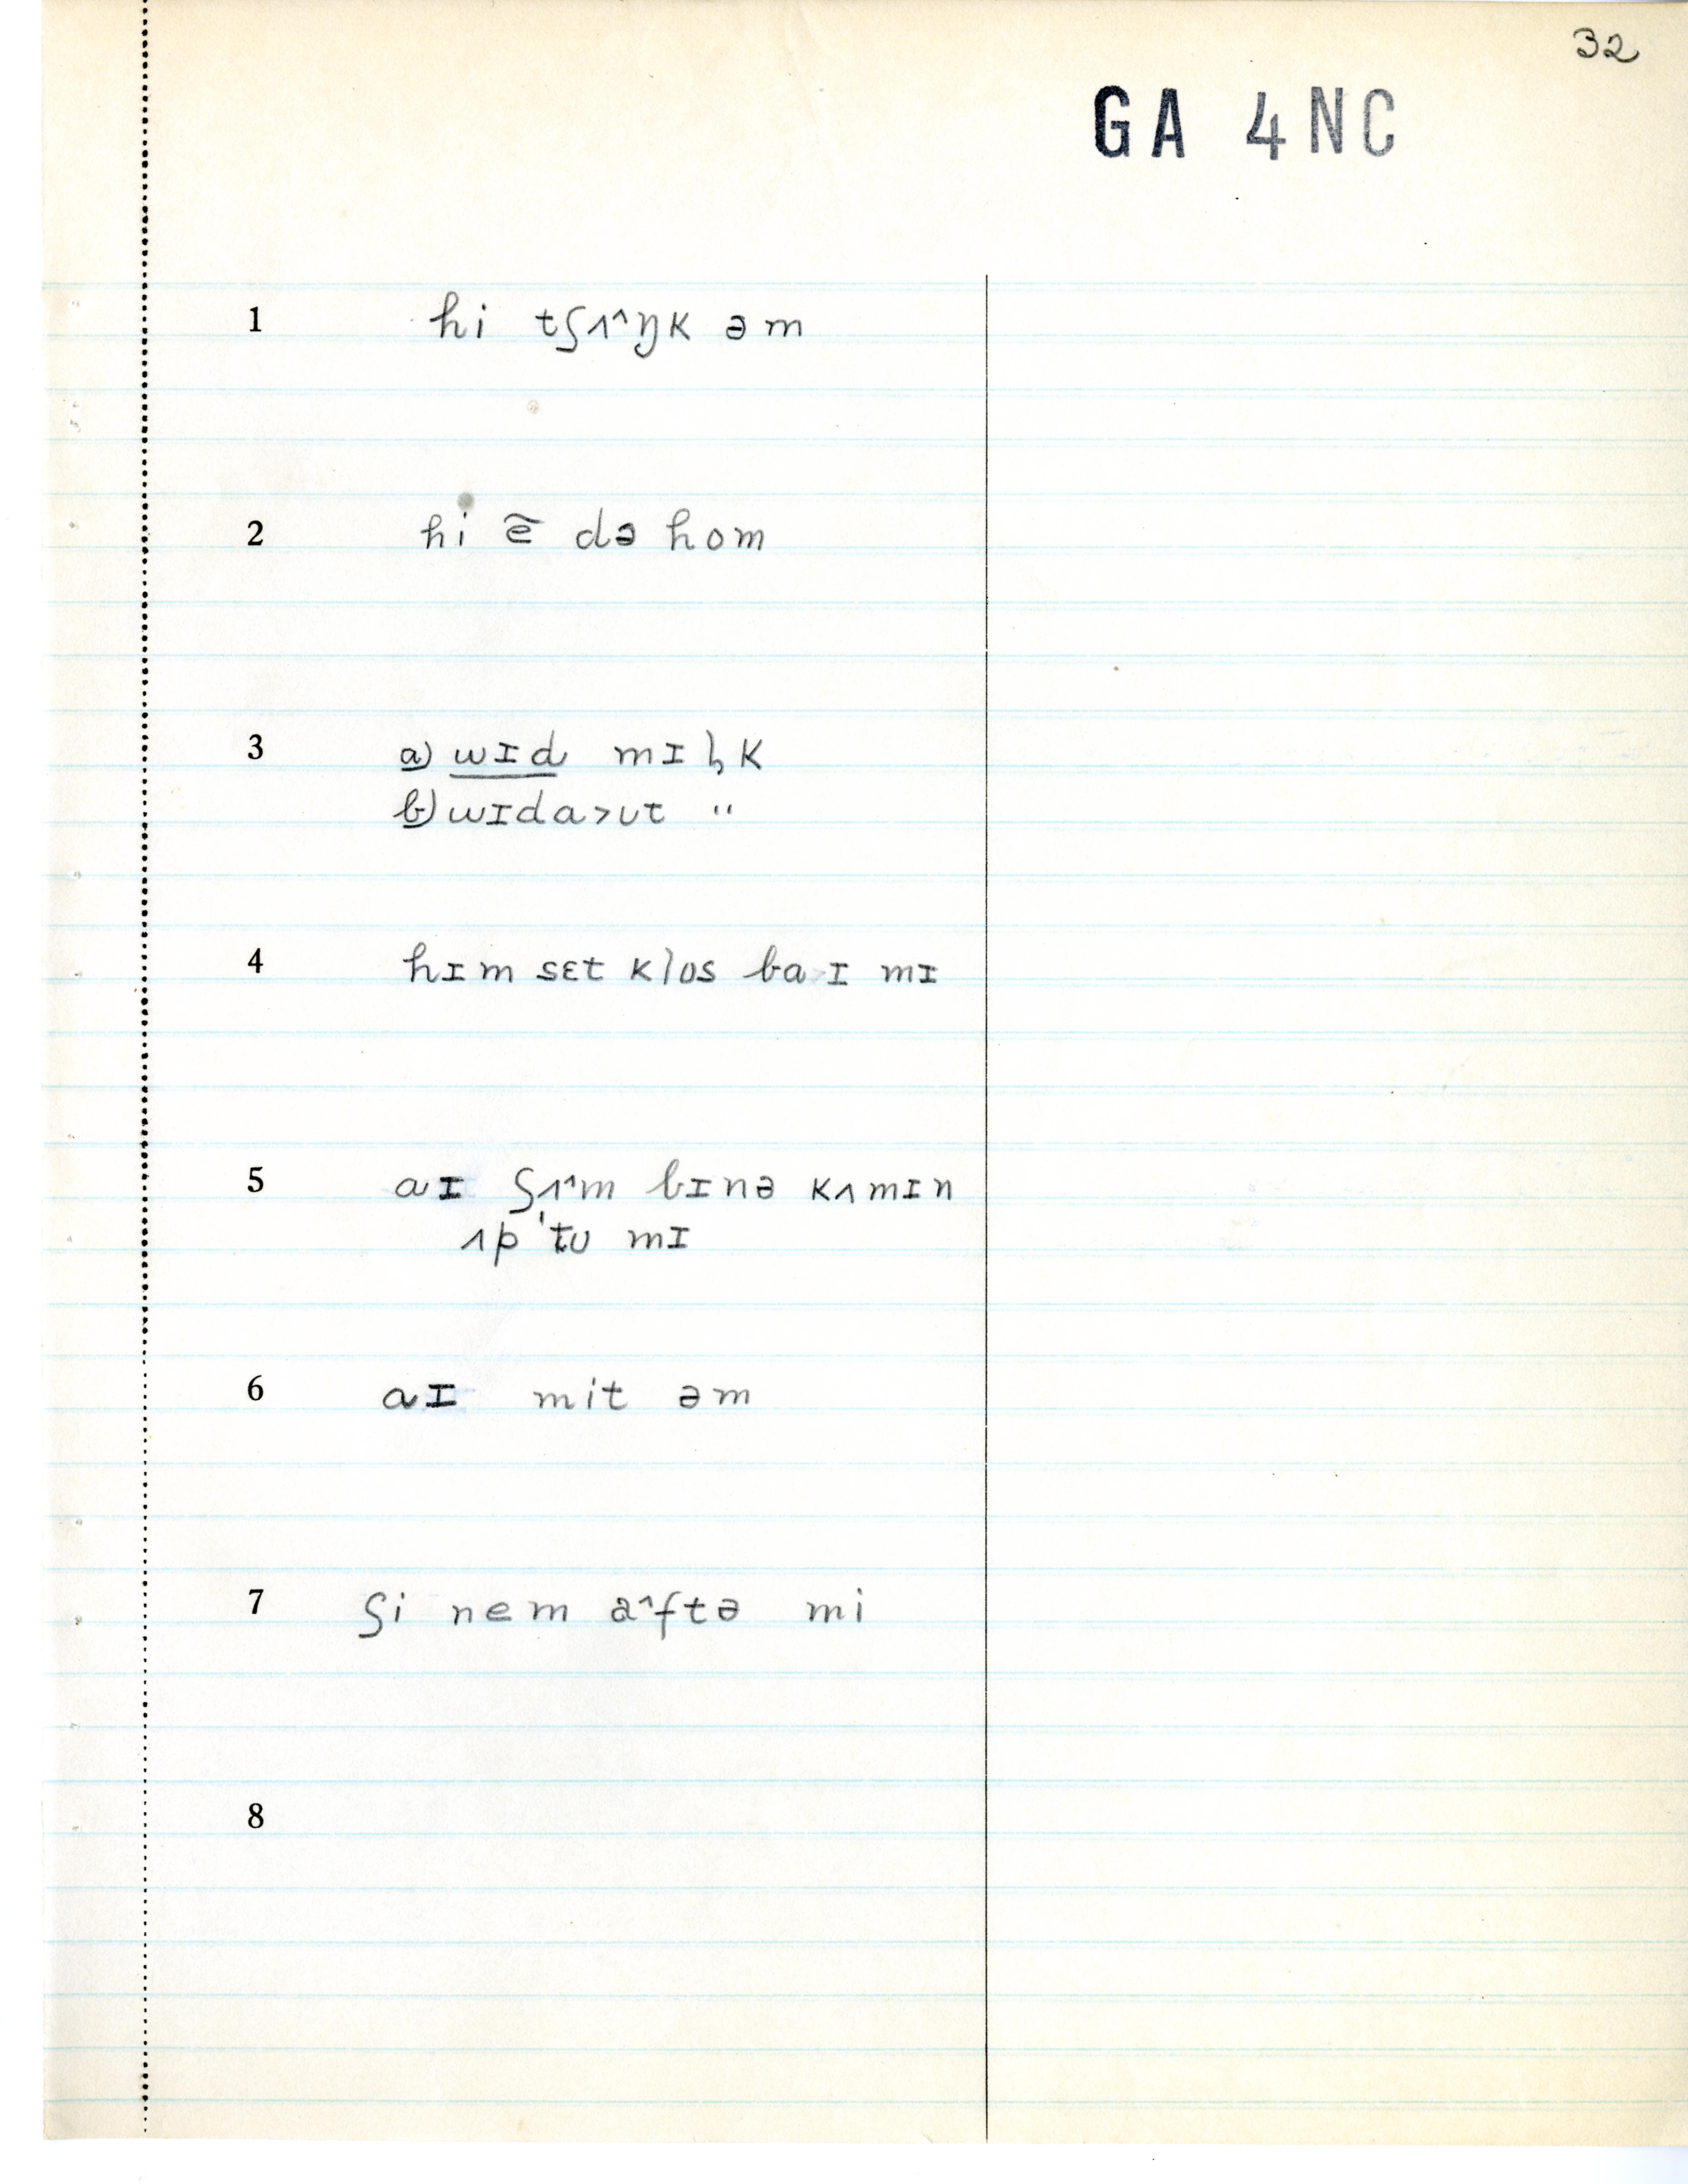 32
GA 4NC
1 hi tʃʌ^ŋk əm
2 hi ẽ də hom
3 a) wɪd mɪl̥k
b) wɪda>ʊt "
4 hɪm sɛt klos ba>ɪ mɪ
5 aɪ ʃʌ^m bɪnə kʌmɪn
ʌp 'tʊ mɪ
6 aɪ mit əm
7 ʃi nem a^ftə mi
8